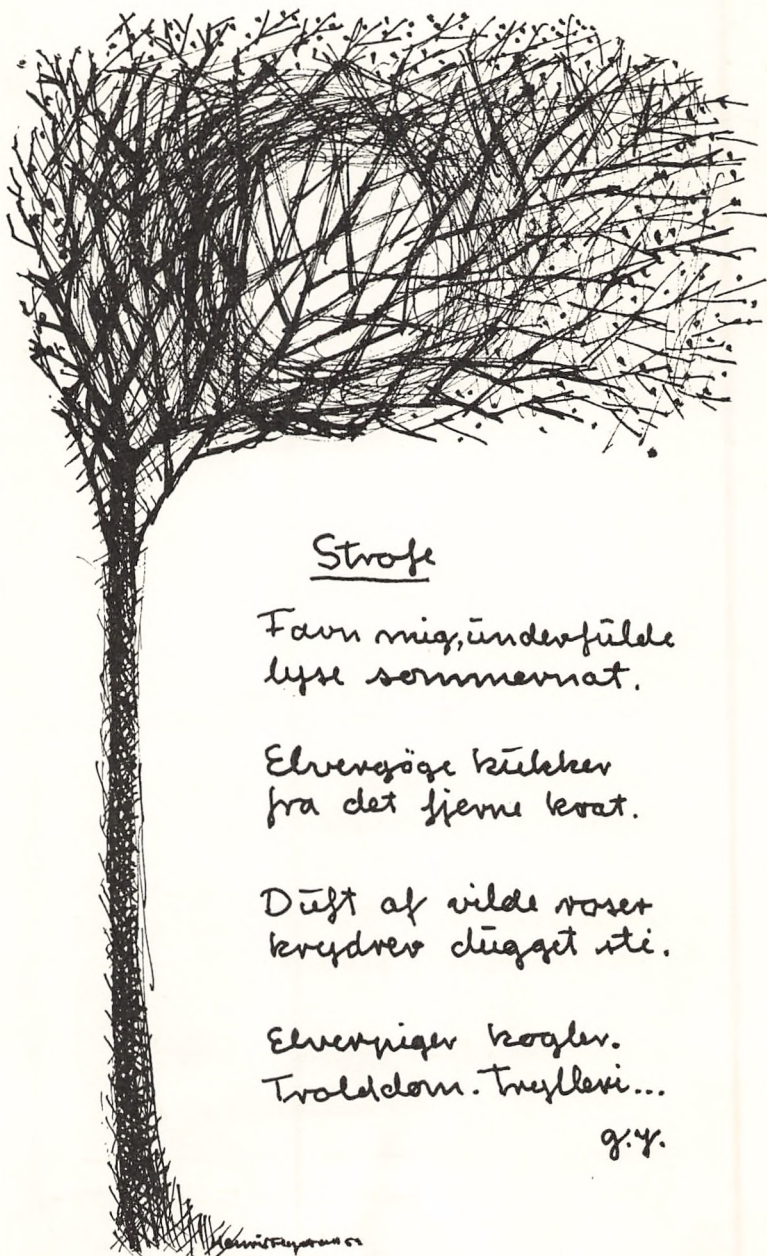 Strofe
Favn mig, underfulde
lyse sommernat.
Elvergöge kukker
fra det fjerne krat.
Duft af vilde roser
krydrer dugget sti.
Elverpiger kogler.
Trolddom. Trylleri...
g.y.